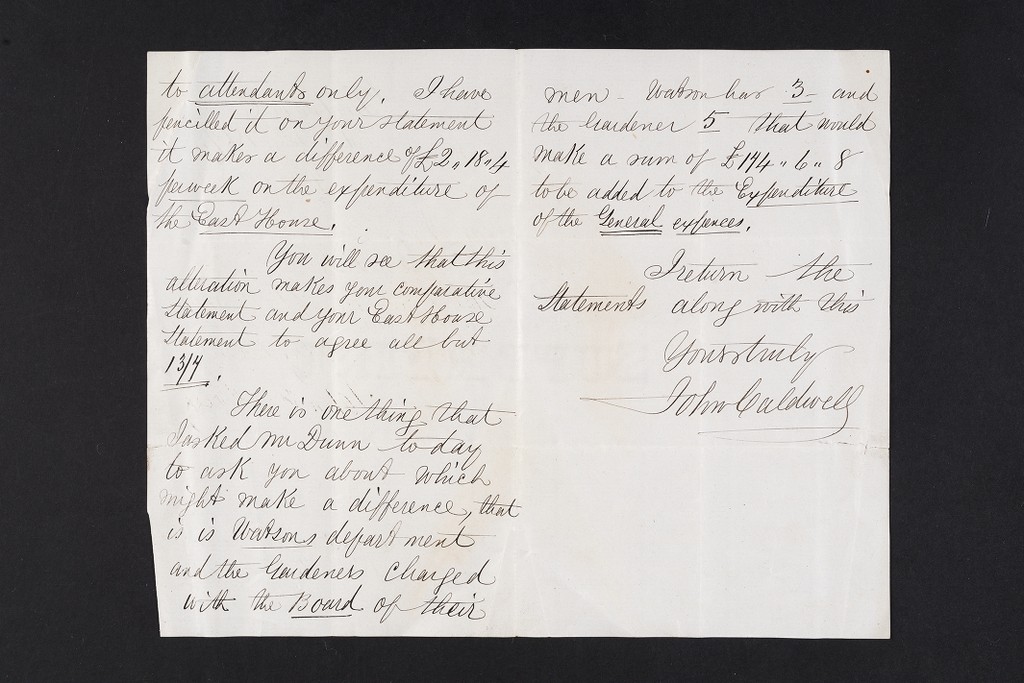 to attendants only. I have
pencilled it on your statement
it makes a difference of £2,,18,,4
per week on the expenditure of
the East House.
You will see that this
alteration makes your comparative
Statement and your East House
Statement to agree all but
13/4.
There is one thing that
I asked Mr Dunn to day
to ask you about which
might make a difference, that
is is Watsons department
and the Gardeners charged
with the Board of their
men - Watson has 3 - and
the Gardener 5 that would
make a sum of £194,,6,,8
to be added to the Expenditure
of the General expences.
I return the
Statements along with this
Yours truly
John Caldwell